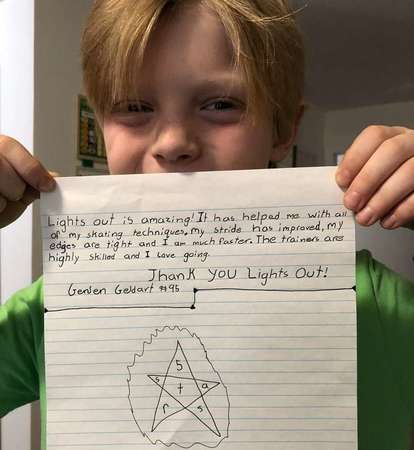 Lights out is amazing! It has helped me with all
of my skating techniques, my stride has improved, my
edges are tight and I am much faster. The trainers are
highly skilled and I love going.
Thank you Lights Out!
Genten Geldart #95
5
s t a
r s